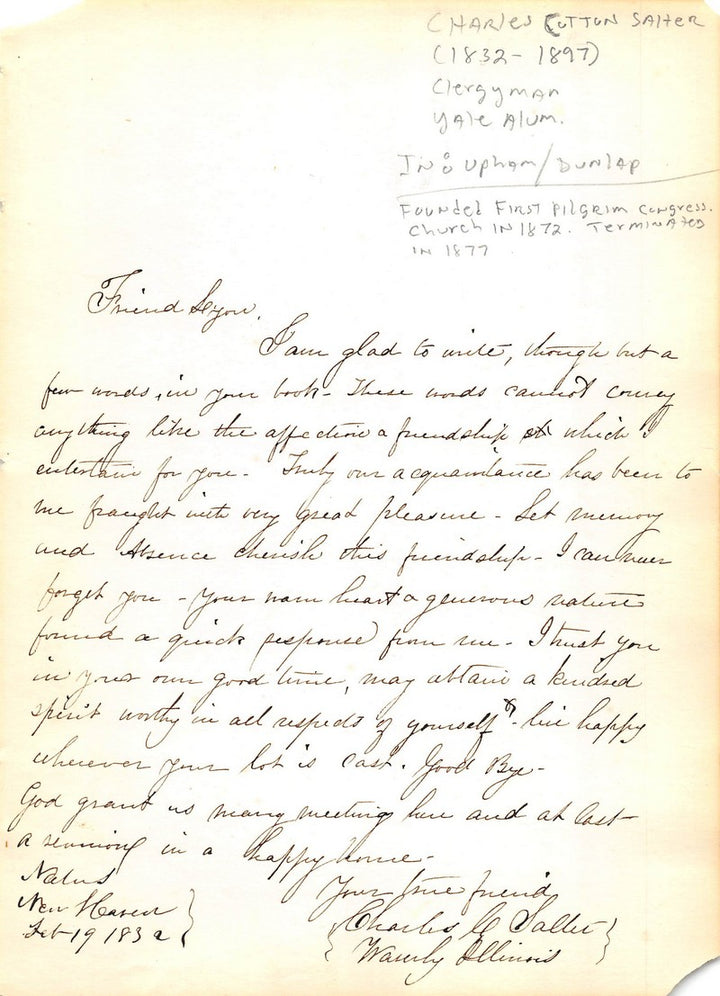 CHARLES COTTON SALTER
(1832 - 1897)
Clergyman
Yale Alum.
IN: UPHAM/DUNLAP
FOUNDED FIRST PILGRIM CONGRESS.
Church IN 1872. TERMINATED
IN 1877
Friend Lyon,
I am glad to write, though but a
few words, in your book - These words cannot convey
anything like the affection & friendship which I
entertain for you - Truly our acquaintance has been to
me fraught with very great pleasure - Let memory
and Absence cherish this friendship - I can never
forget you - Your warm heart & generous nature
found a quick response from me - I trust you
in your own good time, may obtain a kindred
spirit worthy in all respects of yourself & live happy
wherever your lot is cast. Good Bye -
God grant us many meetings here and at last
a reunion in a happy home -
Your true friend
Charles C Salter
Waverly Illinois
Natus
New Haven
Feb 19 1832